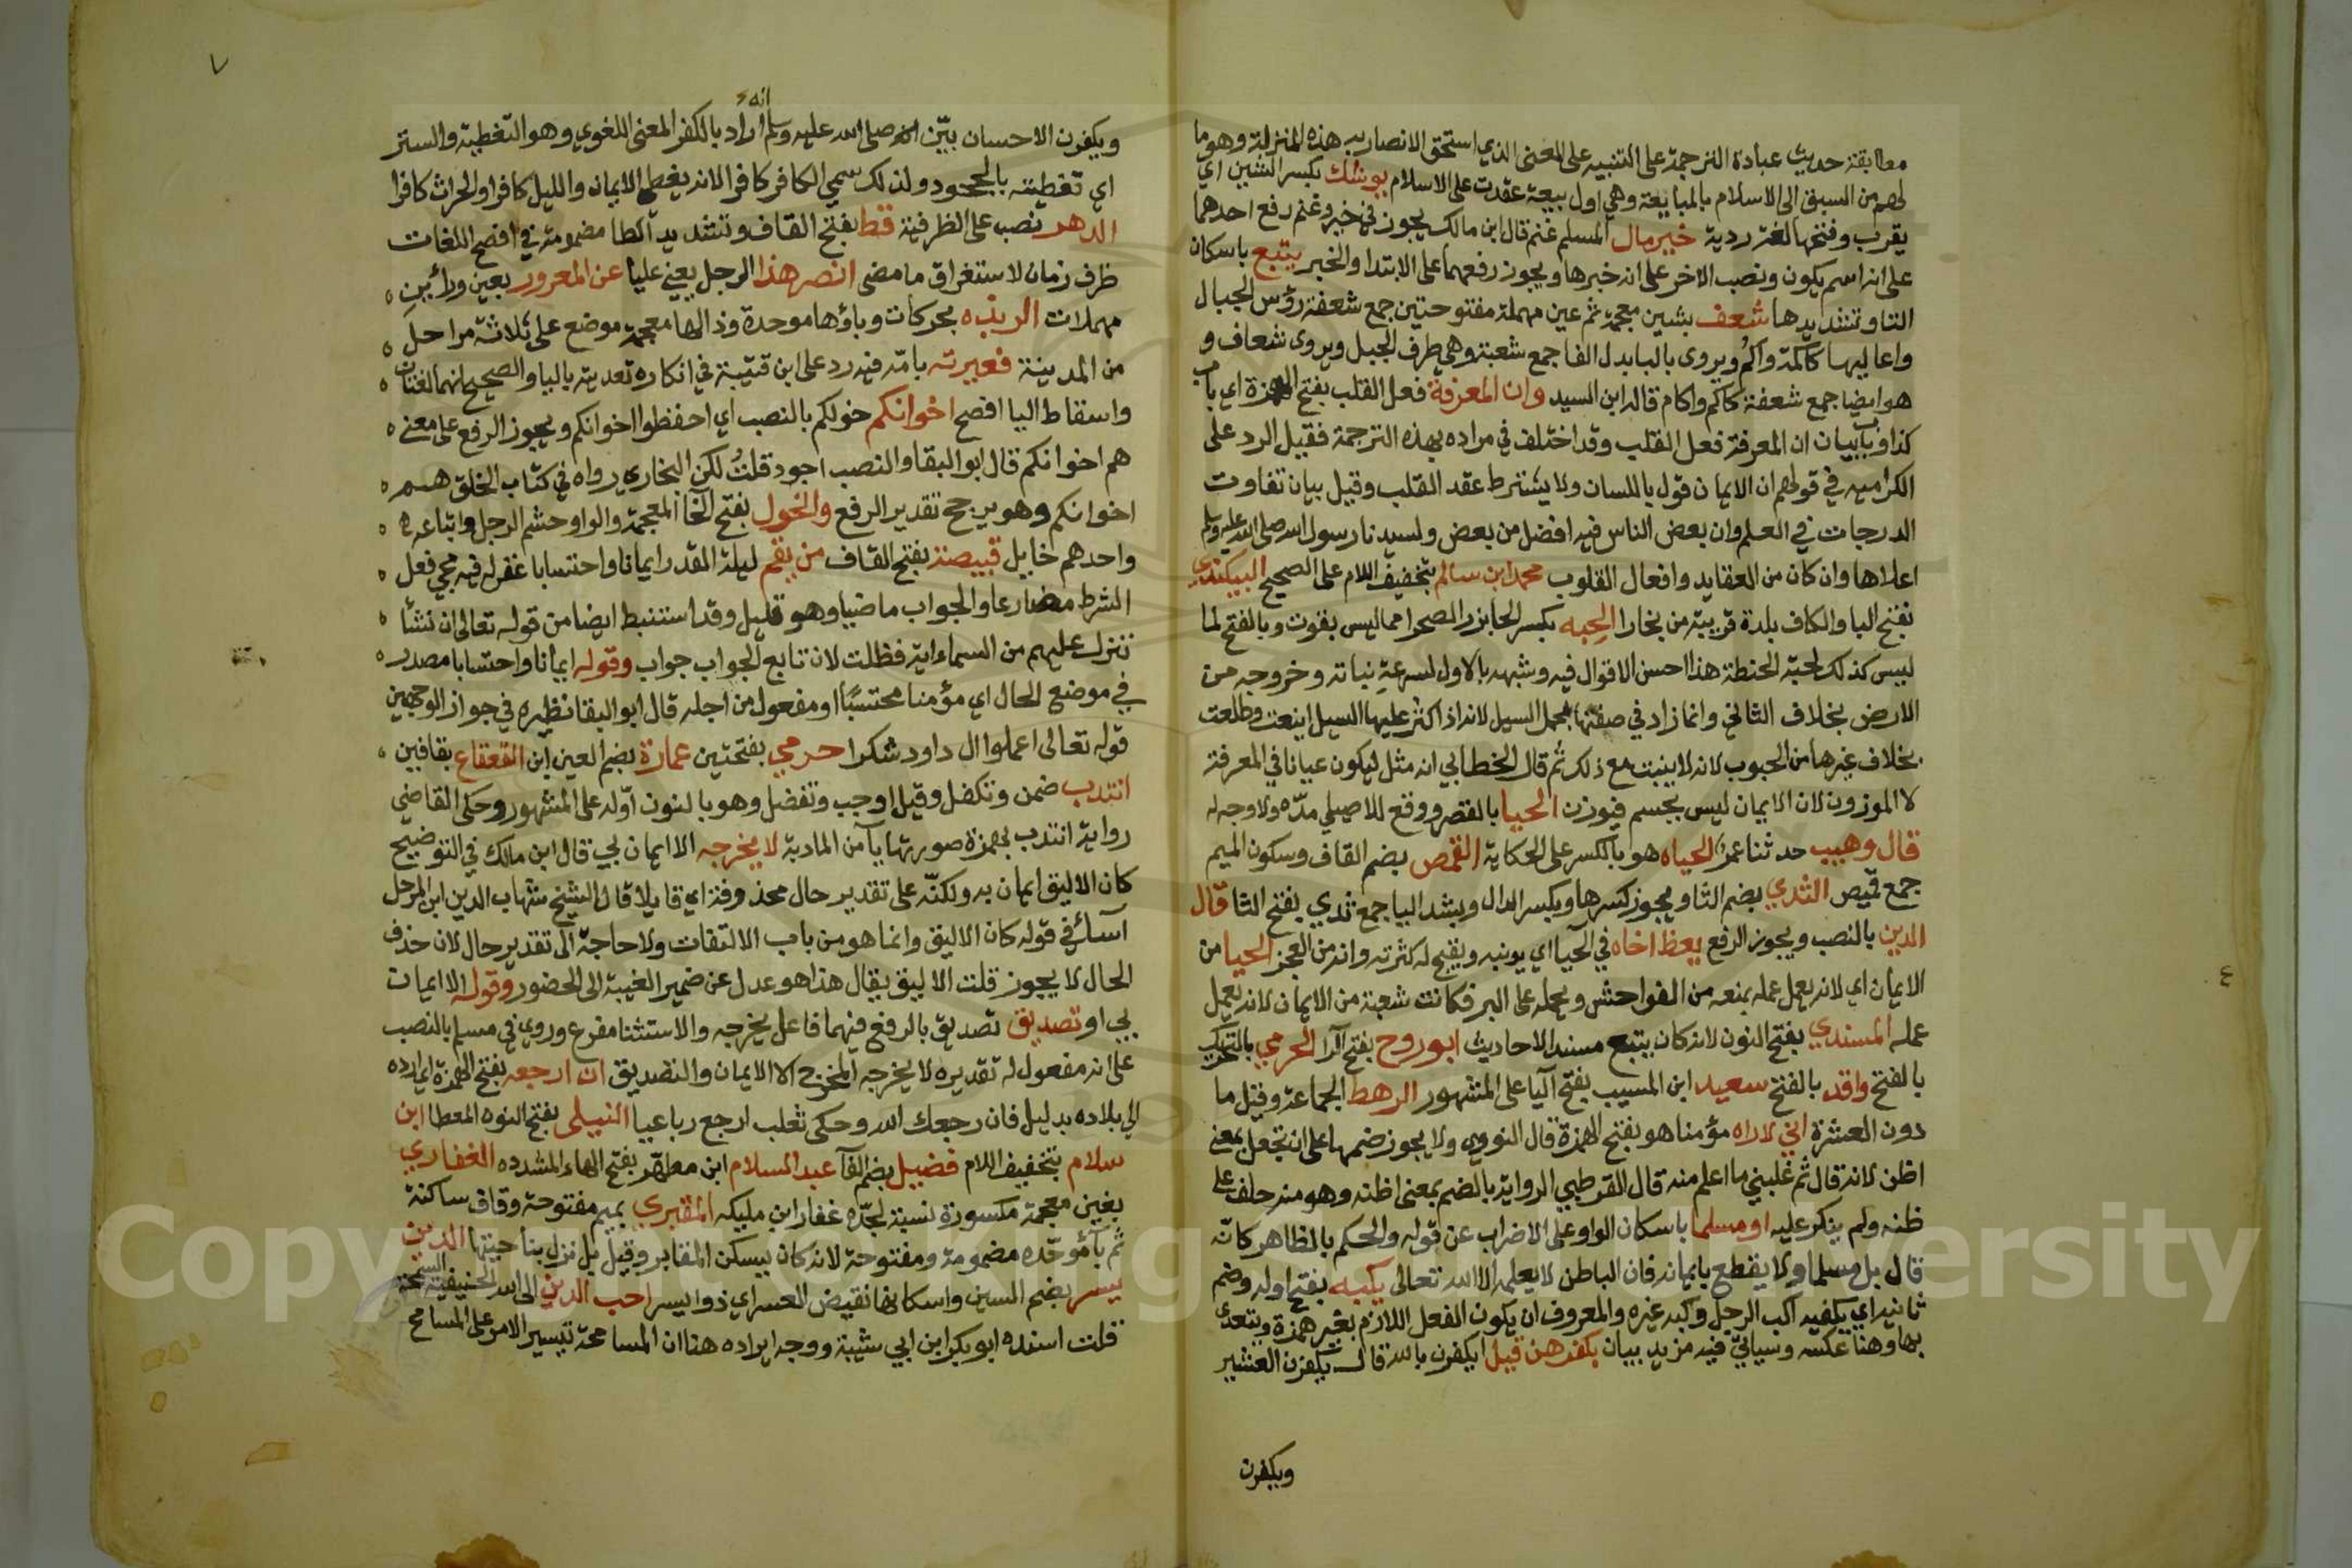 مطابقة حديث عبادة الترجمة على التنبيه على المعنى الذي استحق الانصار به هذه المنزلة وهو ما
لهم من السبق الى الاسلام بالمبايعة وهي اول بيعة عقدت على الاسلام يوشك بكسر الشين اي
يقرب وفتحها لغة ردية خير مال المسلم غنم قال ابن مالك يجوز في خير وغنم رفع احدهما
على انه اسم يكون ونصب الاخر على انه خبرها ويجوز رفعهما على الابتدا والخبر يتبع باسكان
التا وتشديدها شعف بشين معجمة ثم عين مهملة مفتوحتين جمع شعفة رؤس الجبال
واعاليها كاكمة واكم ويروى بالبا بدل الفا جمع شعبة وهي طرف الجبل ويروى شعاف و
هو ايضا جمع شعفة كاكم واكام قاله ابن السيد وان المعرفة فعل القلب بفتح الهمزة اي باب
كذا وباب بيان ان المعرفة فعل القلب وقد اختلف في مراده بهذه الترجمة فقيل الرد على
الكراميه في قولهم ان الايمان قول باللسان ولا يشترط عقد القلب وقيل بيان تفاوت
الدرجات في العلم وان بعض الناس فيه افضل من بعض ولسيدنا رسول الله صلى الله عليه وسلم
اعلاها وان كان من العقايد وافعال القلوب محمد ابن سالم بتخفيف اللام على الصحيح البيكندي
بفتح البا والكاف بلدة قريبة من بخارا الحبه بكسر الحا بزر الصحرا مما ليس بقوت وبالفتح لما
ليس كذلك لحبة الحنطة هذا احسن الاقوال فيه وشبهه بالاول لسرعة نباته وخروجه من
الارض بخلاف الثاني وانما زاد في صفتها بحمل السيل لانه اذا كثر عليها السيل اينعت وطلعت
بخلاف غيرها من الحبوب لانه لا ينبت مع ذلك ثم قال الخطابي انه مثل ليكون عيانا في المعرفة
لا الموزون لان الايمان ليس بجسم فيوزن الحيا بالقصر ووقع للاصيلي مده ولا وجه له
قال وهيب حدثنا عمرو الحياه هو بالكسر على الحكاية القمص بضم القاف وسكون الميم
جمع قميص الثدي بضم الثا ويجوز كسرها وبكسر الدال وبشد اليا جمع ثدي بفتح الثا قال
الدين بالنصب ويجوز الرفع يعظ اخاه في الحيا اي يونبه ويقبح له كثرته وانه من العجز الحيا من
الايمان اي لانه يعمل عمله يمنعه من الفواحش ويحمله على البر فكانت شعبة من الايمان لانه يعمل
عمله المسندي بفتح النون لانه كان يتبع مسند الاحاديث ابو روح بفتح الرا الحرمي بالتحريك
بالفتح واقد بالفتح سعيد ابن المسيب بفتح اليا على المشهور الرهط الجماعة وقيل ما
دون العشرة اني لاراه مؤمنا هو بفتح الهمزة قال النووي ولا يجوز ضمها على ان تجعل بمعنى
اظن لانه قال ثم غلبني ما اعلم منه قال القرطبي الرواية بالضم بمعنى اظنه وهو منه حلف على
ظنه ولم ينكر عليه او مسلما باسكان الواو على الاضراب عن قوله والحكم بالظاهر كانه
قال بل مسلما ولا يقطع بايمانه فان الباطن لا يعلمه الا الله تعالى يكبه بفتح اوله وضم
ثانيه اي يلقيه اكب الرجل وكبه غيره والمعروف ان يكون الفعل اللازم بغير همزة ويتعدى
بها وهنا عكسه وسياتي فيه مزيد بيان بكفرهن قيل ايكفرن بالله قال يكفرن العشير
ويكفرن
٧
انه
ويكفرن الاحسان بيّن انه صلى الله عليه وسلم اراد بالكفر المعنى اللغوي وهو التغطية والستر
اي تغطيته بالجحود ولذلك سمي الكافر كافرا لانه يغطي الايمان والليل كافرا والحراث كافرا
الدهر نصب على الظرفية قط بفتح القاف وتشديد الطا مضمومة في افصح اللغات
ظرف زمان لاستغراق ما مضى انصر هذا الرجل يعني عليا عن المعرور بعين ورائين
مهملات الربذه بحركات وباؤها موحدة وذالها معجمة موضع على ثلاثة مراحل
من المدينة فعيرته بامّه فيه رد على ابن قتيبة في انكاره تعديته بالبا والصحيح انهما لغتان
واسقاط البا افصح اخوانكم خولكم بالنصب اي احفظوا اخوانكم ويجوز الرفع على معنى
هم اخوانكم قال ابو البقا والنصب اجود قلت لكن البخاري رواه في كتاب الخلق هم
اخوانكم وهو يرجح تقدير الرفع والخول بفتح الخا المعجمة والواو حشم الرجل واتباعه
واحدهم خايل قبيصة بفتح القاف من يقم ليلة القدر ايمانا واحتسابا غفر له فيه مجي فعل
الشرط مضارعا والجواب ماضيا وهو قليل وقد استنبط ايضا من قوله تعالى ان نشأ
ننزل عليهم من السماء اية فظلت لان تابع الجواب جواب وقوله ايمانا واحتسابا مصدر
في موضع الحال اي مؤمنا محتسبًا او مفعول من اجله قال ابو البقا نظيره في جواز الوجهين
قوله تعالى اعملوا ال داود شكرا حرمي بفتحتين عمارة بضم العين ابن القعقاع بقافين
انتدب ضمن وتكفل وقيل اوجب وتفضل وهو بالنون اوله على المشهور وحكى القاضي
رواية ائتدب بهمزة صورتها يا من المادبة لا يخرجه الا ايمان بي قال ابن مالك في التوضيح
كان الاليق ايمان به ولكنه على تقدير حال محذوفة اي قايلا قال الشيخ شهاب الدين ابن المرحل
اساء في قوله كان الاليق وانما هو من باب الالتفات ولا حاجة الى تقدير حال لان حذف
الحال لا يجوز قلت الاليق يقال هذا هو عدل عن ضمير الغيبة الى الحضور وقوله الا ايمان
بي او تصديق تصديق بالرفع فيهما فاعل يخرجه والاستثنا مفرغ وروي في مسلم بالنصب
على انه مفعول له تقديره لا يخرجه المخرج الا الايمان والتصديق ان ارجعه بفتح الهمزة اي ارده
الى بلاده بدليل فان رجعك الله وحكى ثعلب ارجع رباعيا النيلى بفتح النوه المعطا ابن
سلام بتخفيف اللام فضيل بضم الفا عبد السلام ابن مطهّر بفتح الهاء المشدده الغفاري
بغين معجمة مكسورة نسبة لجده غفار ابن مليكه المقبري بميم مفتوحة وقاف ساكنة
ثم با موحّده مضمومة ومفتوحة لانه كان يسكن المقابر وقيل بل نزل بناحيتها الدين
يسر بضم السين واسكانها نقيض العسر اي ذو ايسر احب الدين الى الله الحنيفية السمحة
قلت اسنده ابو بكر ابن ابي شيبة ووجه ايراده هنا ان المسامحة تيسير الامر على المسامح
Copyright © King University